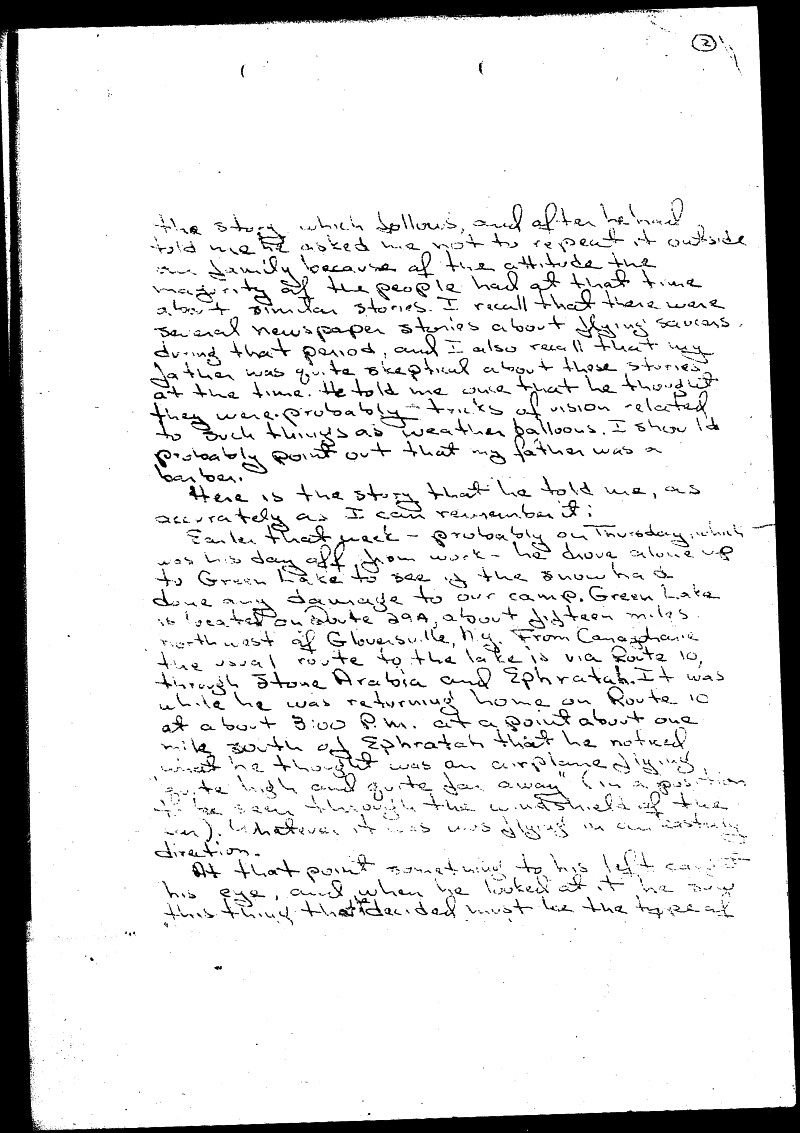 2
the story which follows, and after he had
told me he asked me not to repeat it outside
our family because of the attitude the
majority of the people had at that time
about similar stories. I recall that there were
several newspaper stories about flying saucers
during that period, and I also recall that my
father was quite skeptical about these stories
at the time. He told me once that he thought
they were probably tricks of vision related
to such things as weather balloons. I should
probably point out that my father was a
barber.
Here is the story that he told me, as
accurately as I can remember it:
Earlier that week - probably on Thursday, which
was his day off from work - he drove alone up
to Green Lake to see if the snow had
done any damage to our camp. Green Lake
is located on Route 29A, about fifteen miles
northwest of Gloversville, N.Y. From Canajoharie
the usual route to the lake is via Route 10,
through Stone Arabia and Ephratah. It was
while he was returning home on Route 10
at about 3:00 P.M. at a point about one
mile south of Ephratah that he noticed
what he thought was an airplane flying
"quite high and quite far away" (in a position
to be seen through the windshield of the
car). Whatever it was was flying in an easterly
direction.
At that point something to his left caught
his eye, and when he looked at it he saw
this thing that he decided must be the type of